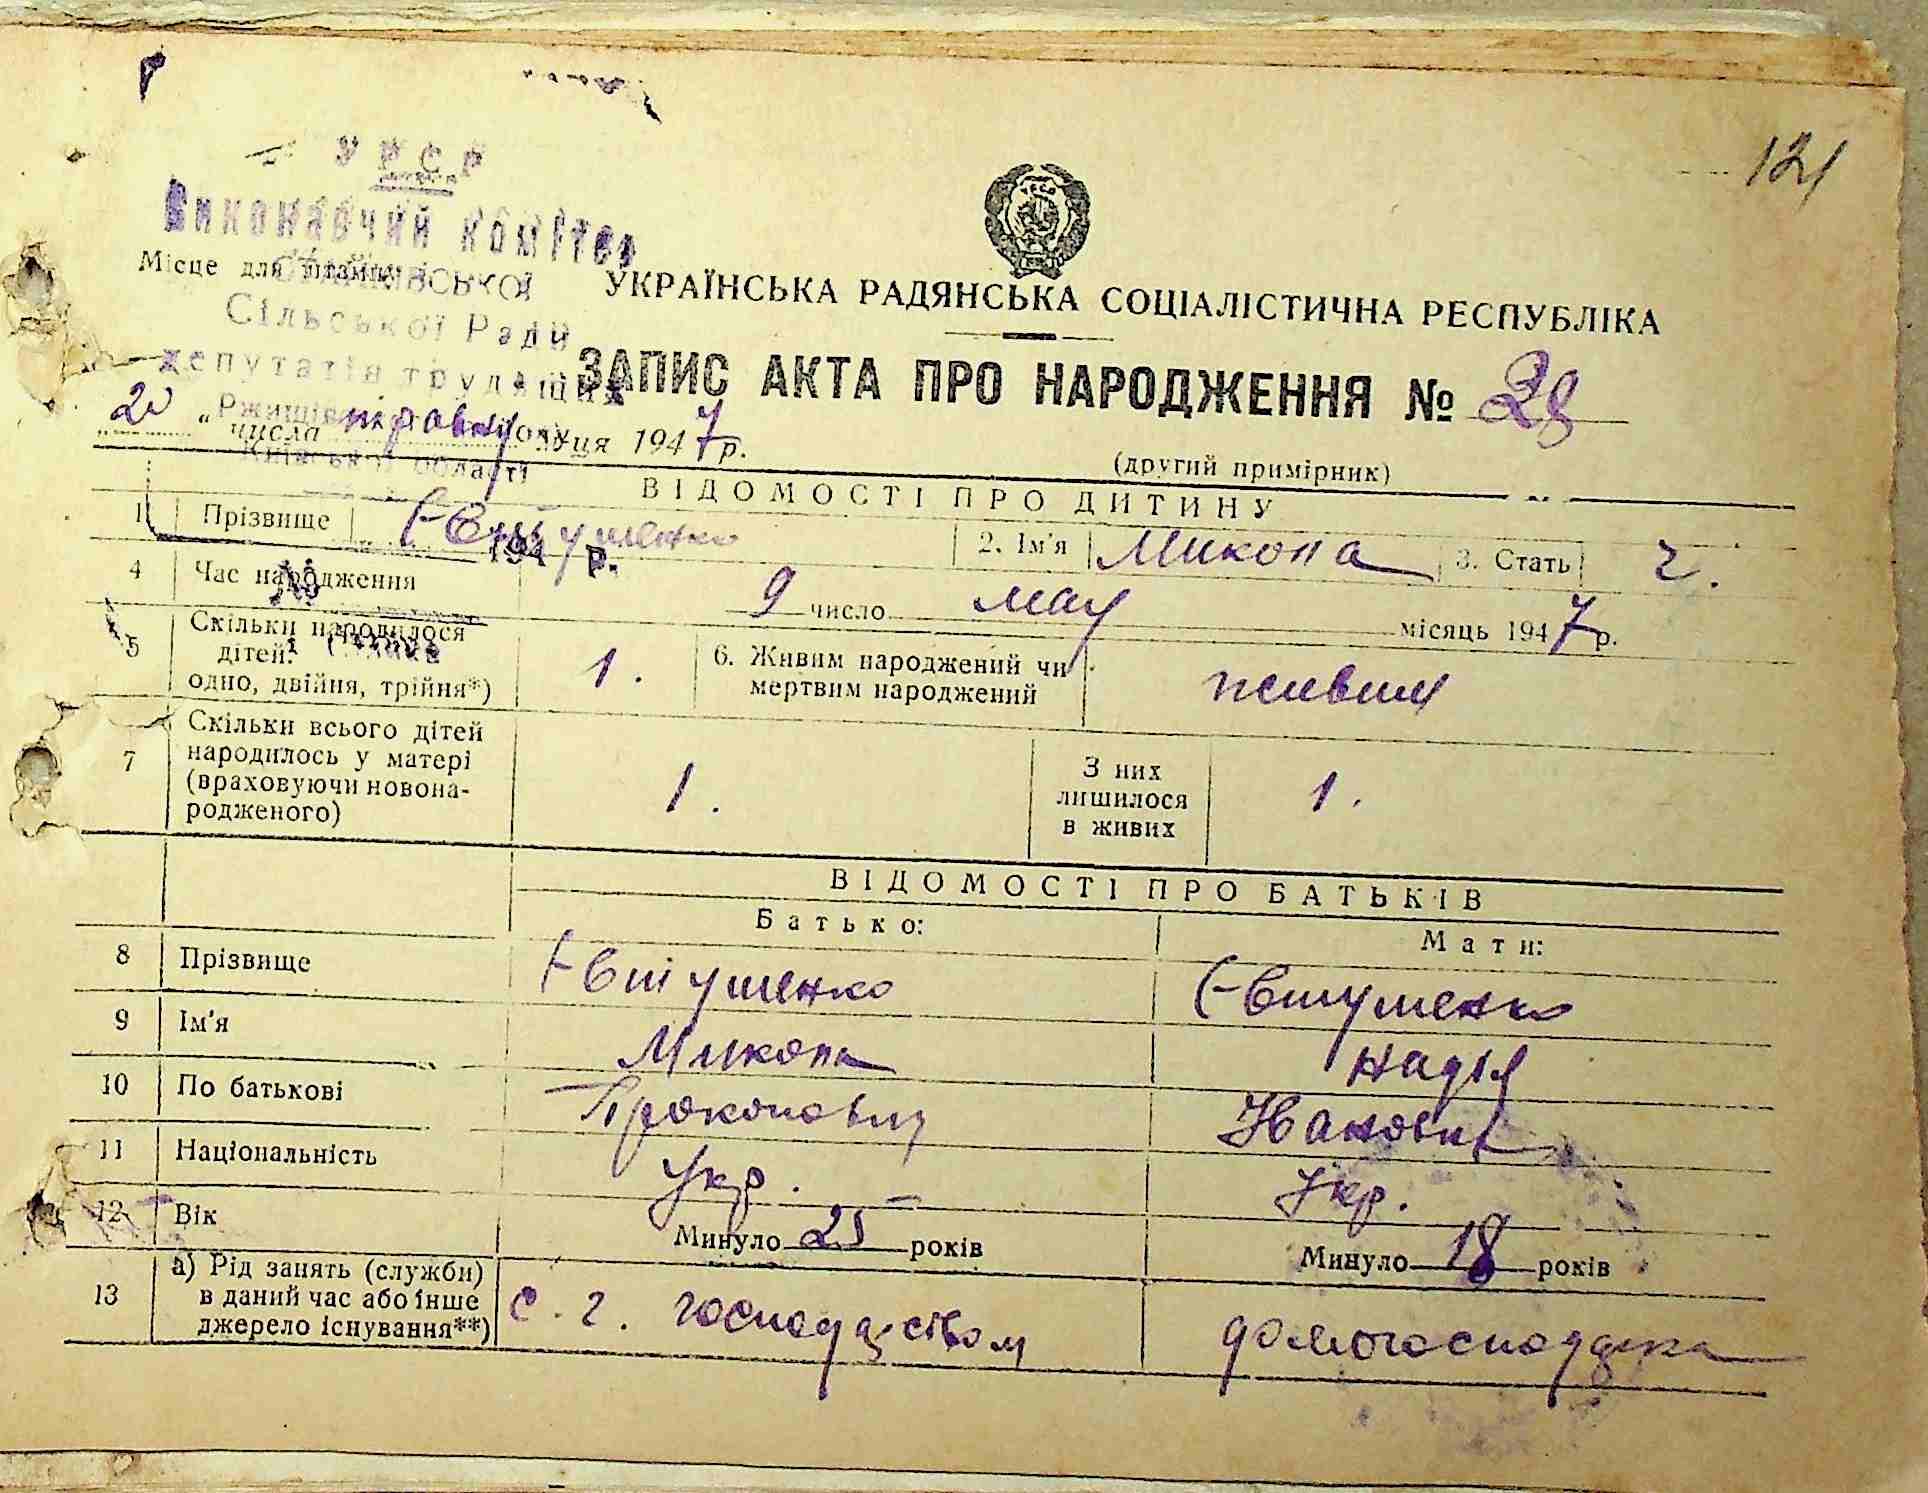 124
УРСР
Виконавчий комітет
Місце для штампу
Сільської Ради
депутатів трудящих
Київської області
УКРАЇНСЬКА РАДЯНСЬКА СОЦІАЛІСТИЧНА РЕСПУБЛІКА
ЗАПИС АКТА ПРО НАРОДЖЕННЯ № 28
20 " числа травня місяця 1947 р.
(другий примірник)
ВІДОМОСТІ ПРО ДИТИНУ
1 Прізвище Євтушенко 2. Ім'я Микола 3. Стать ч.
194 р.
4 Час народження 9 число мая місяць 1947 р.
5 Скільки народилося дітей: одно, двійня, трійня*) 1. 6. Живим народжений чи мертвим народжений живим
7 Скільки всього дітей народилось у матері (враховуючи новонародженого) 1. З них лишилося в живих 1.
ВІДОМОСТІ ПРО БАТЬКІВ
Батько: Мати:
8 Прізвище Євтушенко Євтушенко
9 Ім'я Микола Надія
10 По батькові Прокопович Іванівна
11 Національність Укр. Укр.
12 Вік Минуло 25 років Минуло 18 років
13 а) Рід занять (служби) в даний час або інше джерело існування**) с. г. господарством домогосподарка